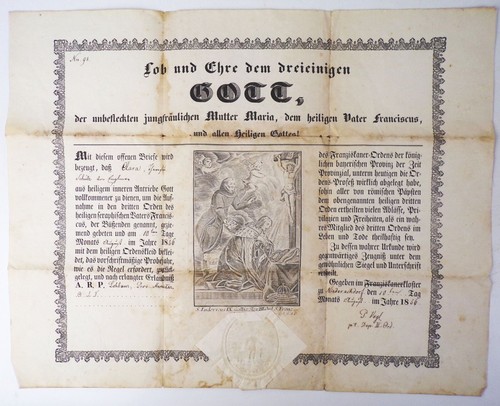 No. 91
Lob und Ehre dem dreieinigen
GOTT,
der unbefleckten jungfräulichen Mutter Maria, dem heiligen Vater Franciscus,
und allen Heiligen Gottes!
Mit diesem offenen Briefe wird
bezeugt, daß Clara,
aus heiligem inneren Antriebe Gott
vollkommener zu dienen, um die Auf-
nahme in den dritten Orden des heil-
igen seraphischen Vaters Francis-
cus, der Büßenden genannt, gezie-
mend gebeten und am 10 Tag
Monats August im Jahre 1856
mit dem heiligen Ordenskleid beklei-
det, das vorschriftmäßige Probejahr,
wie es die Regel erfordert, zurück-
gelegt, und nach erlangter Erlaubniß
A. R. P.
des Franziskaner-Ordens der könig-
lich bayerischen Provinz der Zeit
Provinzial, unterm heutigen die Or-
dens-Profeß wirklich abgelegt habe,
sohin aller von römischen Päpsten
dem obengenannten heiligen dritten
Orden ertheilten vielen Ablässe, Pri-
vilegien und Freiheiten, als ein wah-
res Mitglied des dritten Ordens im
Leben und Tode theilhaftig sey.
Zu dessen wahrer Urkunde wird
gegenwärtiges Zeugniß unter dem
gewöhnlichen Siegel und Unterschrift
ertheilt.
Gegeben im Franziskanerkloster
zu den 10 Tag
Monats August im Jahre 1856